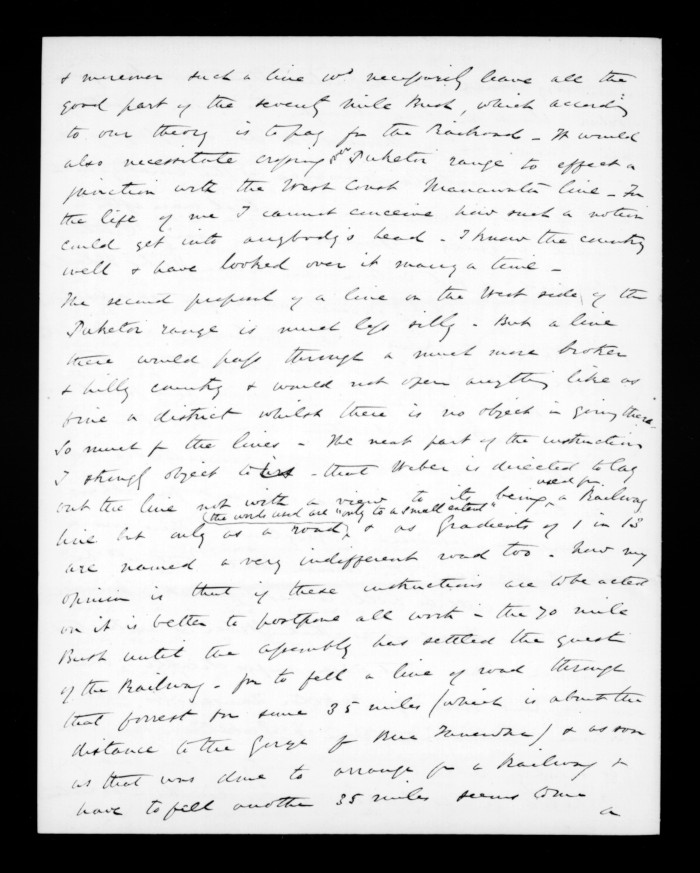 & moreover such a line wd necessarily leave all the
good part of the seventy mile Bush, which according
to our theory is to pay for the Railroad - It would
also necessitate crossing the Puketoi range to effect a
junction with the West Coast Manawatu line - For
the life of me I cannot conceive how such a notion
could get into anybody's head - I know the country
well & have looked over it many a time -
The second proposal of a line on the West side of the
Puketoi range is much less silly - But a line
there would pass through a much more broken
& hilly country & would not open anything like as
fine a district whilst there is no object in going there -
So much for the lines - The next part of the instructions
I strongly object to is - that Weber is directed to lay
used for
out the line not with a view to its being a Railway
(the words used are "only to a small extent"
line but only as a road, & as Gradients of 1 in 13
are named a very indifferent road too - Now my
opinion is that if these instructions are to be acted
on it is better to postpone all work in the 70 mile
Bush until the Assembly has settled the quest
of the Railway - for to fell a line of road through
that forrest for some 35 miles (which is about the
distance to the Gorge f) & as soon
as that was done to arrange for a Railway &
have to fell another 35 miles seems to me
a